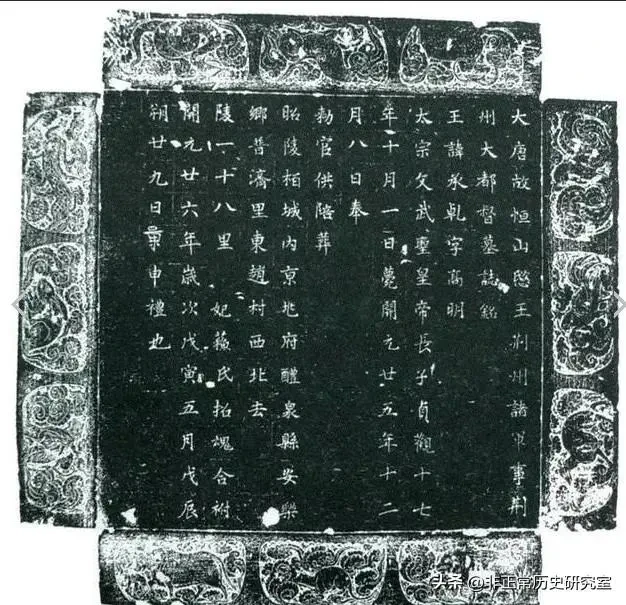 大唐故恒山愍王荆州諸軍事荆
州大都督墓誌銘
王諱承乹字高明
太宗文武聖皇帝長子貞觀十七
年十月一日薨開元廿五年十二
月八日奉
勑官供陪葬
昭陵栢城内京兆府醴泉縣安樂
鄉普濟里東趙村西北去
陵一十八里 妃蘇氏招魂合祔
開元廿六年歳次戊寅五月戊辰
朔廿九日申禮也
头条 @非正常历史研究室